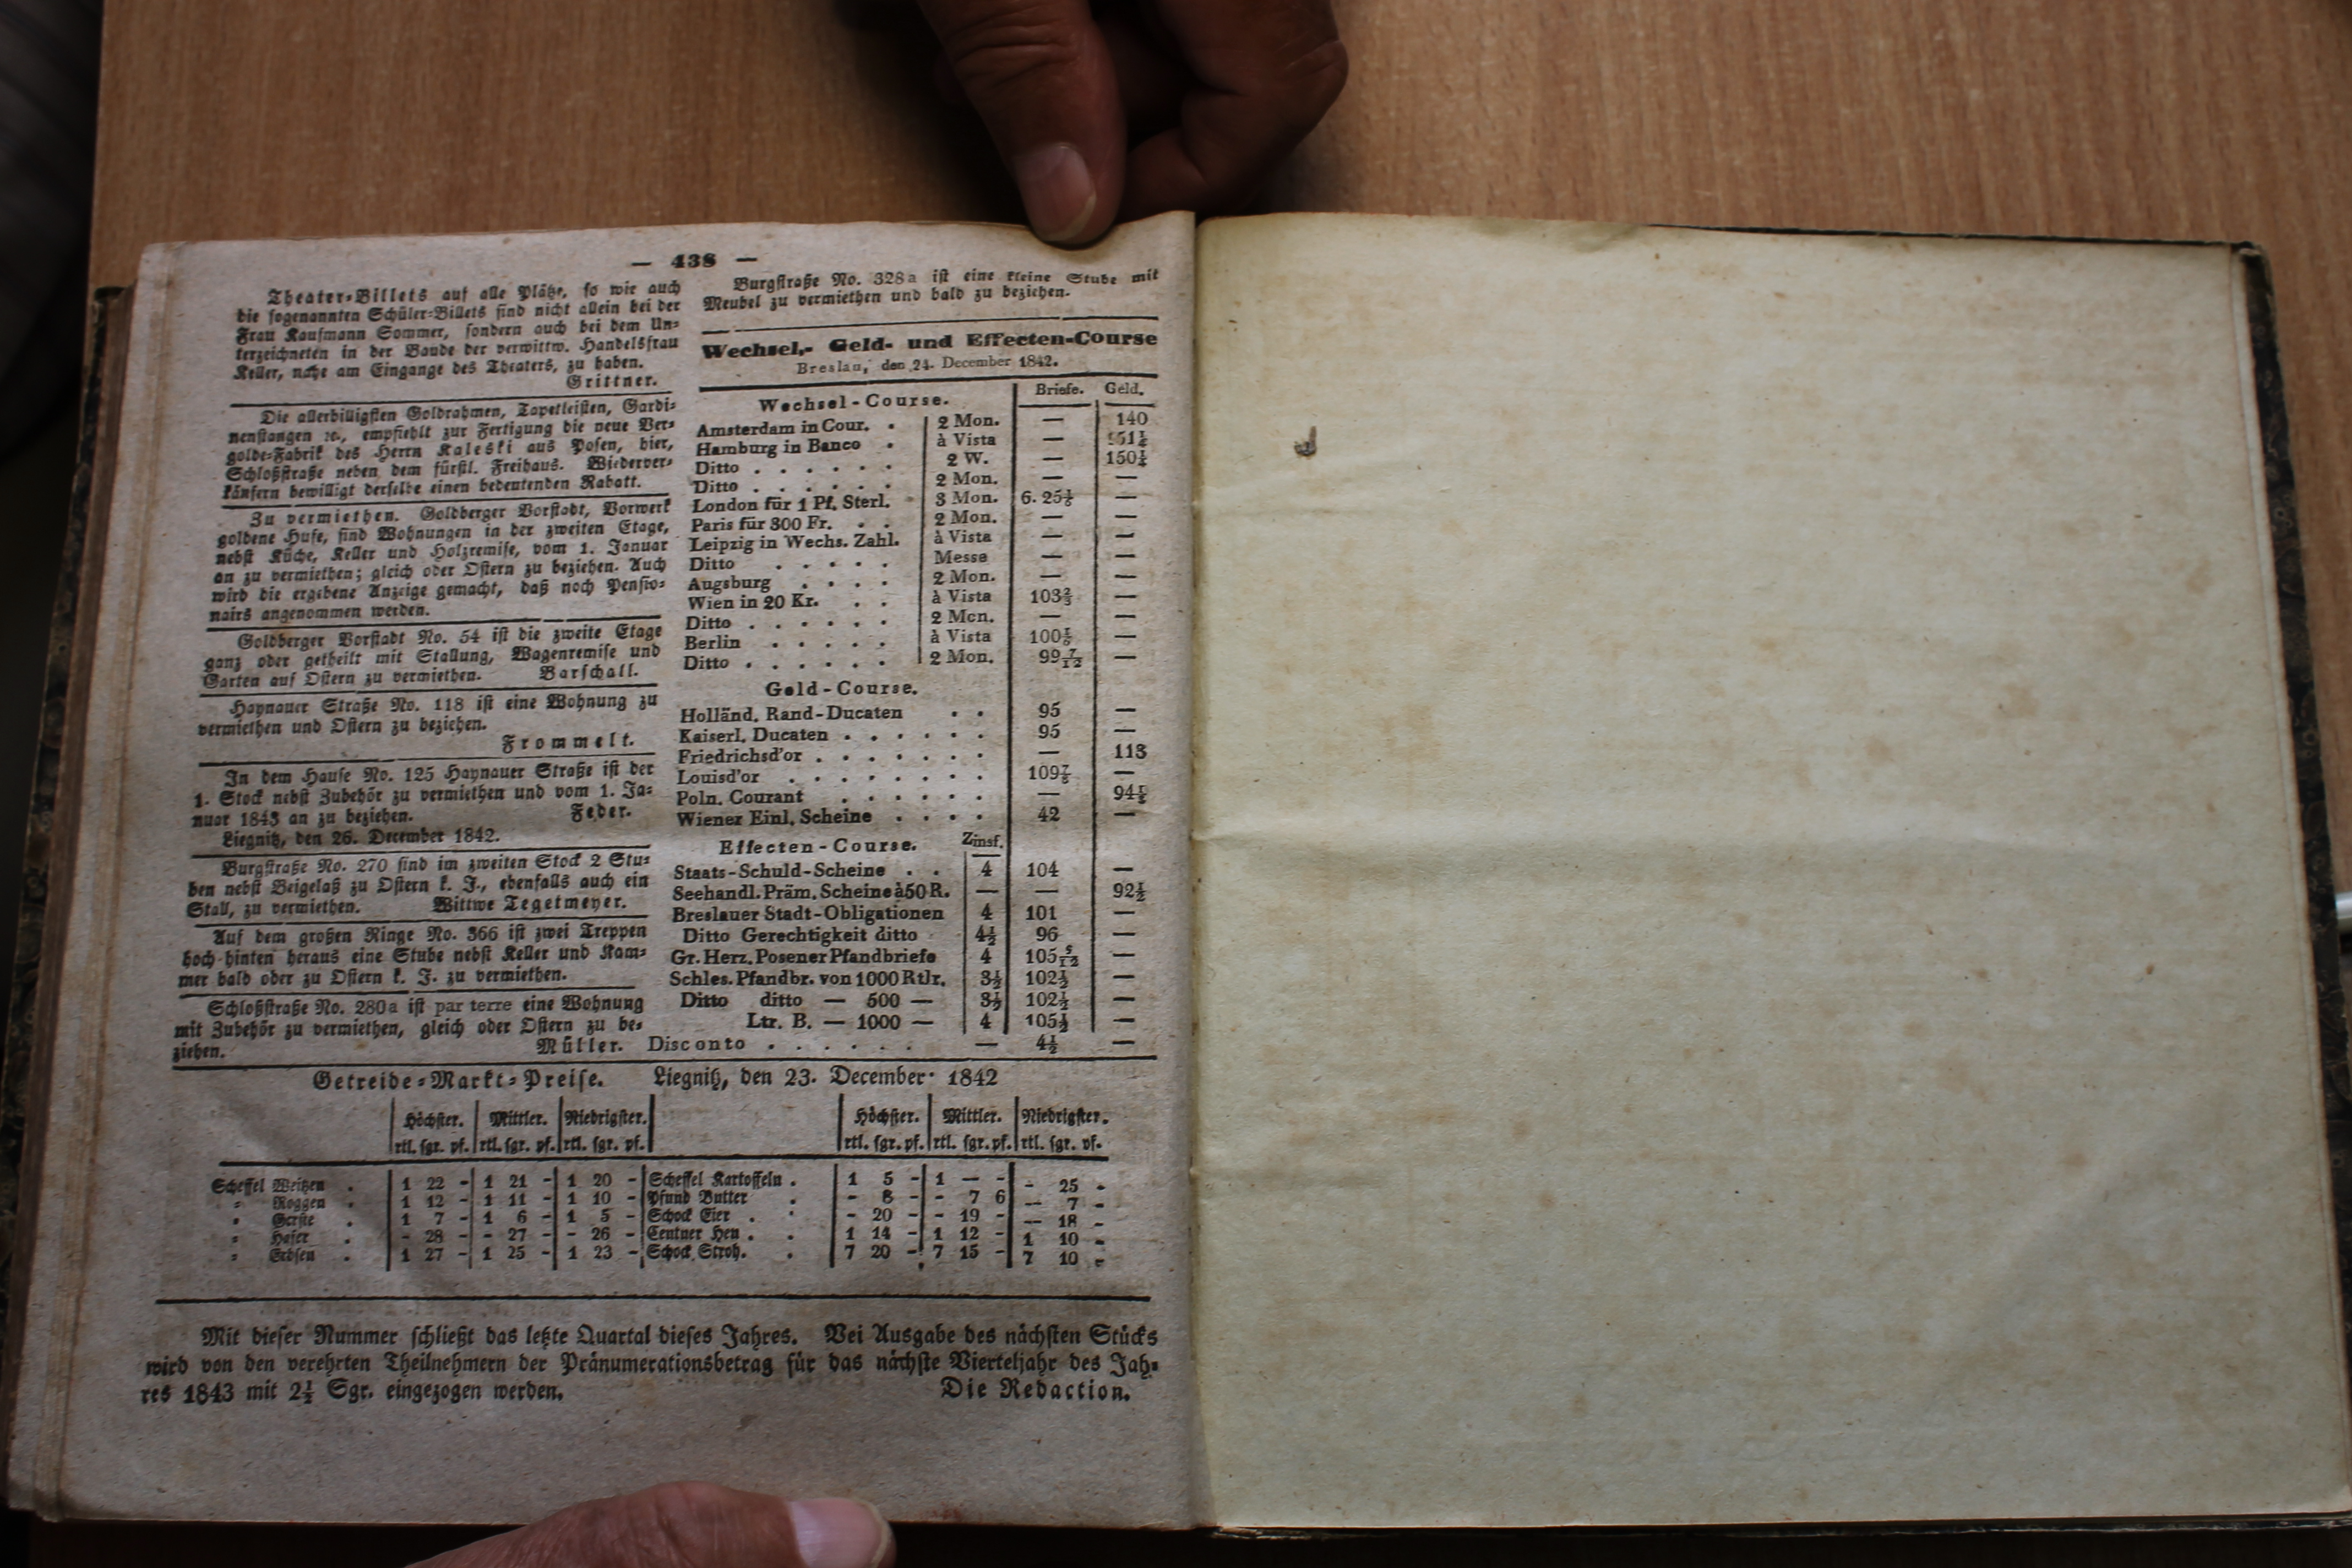 — 438 —
Theater-Billets auf alle Plätze, so wie auch
die sogenannten Schüler-Billets sind nicht allein bei der
Frau Kaufmann Sommer, sondern auch bei dem Un-
terzeichneten in der Baude der verwittw. Handelsfrau
Keller, nahe am Eingange des Theaters, zu haben.
Grittner.
Die allerbilligsten Goldrahmen, Tapetleisten, Gardi-
nenstangen ꝛc., empfiehlt zur Fertigung die neue Ver-
golde-Fabrik des Herrn Kaleski aus Posen, hier,
Schloßstraße neben dem fürstl. Freihaus. Wiederver-
käufern bewilligt derselbe einen bedeutenden Rabatt.
Zu vermiethen. Goldberger Vorstadt, Vorwerk
goldene Hufe, sind Wohnungen in der zweiten Etage,
nebst Küche, Keller und Holzremise, vom 1. Januar
an zu vermiethen; gleich oder Ostern zu beziehen. Auch
wird die ergebene Anzeige gemacht, daß noch Pensio-
nairs angenommen werden.
Goldberger Vorstadt No. 54 ist die zweite Etage
ganz oder getheilt mit Stallung, Wagenremise und
Garten auf Ostern zu vermiethen. Barschall.
Haynauer Straße No. 118 ist eine Wohnung zu
vermiethen und Ostern zu beziehen.
Frommelt.
In dem Hause No. 125 Haynauer Straße ist der
1. Stock nebst Zubehör zu vermiethen und vom 1. Ja-
nuar 1843 an zu beziehen. Feder.
Liegnitz, den 26. December 1842.
Burgstraße No. 270 sind im zweiten Stock 2 Stu-
ben nebst Beigelaß zu Ostern k. J., ebenfalls auch ein
Stall, zu vermiethen. Wittwe Tegetmeyer.
Auf dem großen Ringe No. 366 ist zwei Treppen
hoch hinten heraus eine Stube nebst Keller und Kam-
mer bald oder zu Ostern k. J. zu vermiethen.
Schloßstraße No. 280a ist par terre eine Wohnung
mit Zubehör zu vermiethen, gleich oder Ostern zu be-
ziehen. Müller.
Burgstraße No. 328a ist eine kleine Stube mit
Meubel zu vermiethen und bald zu beziehen.
Wechsel,- Geld- und Effecten-Course
Breslau, den 24. December 1842.
Briefe. Geld.
Wechsel-Course.
Amsterdam in Cour. . 2 Mon. — 140
Hamburg in Banco . à Vista — 151¼
Ditto . . . . . . 2 W. — 150¼
Ditto . . . . . . 2 Mon. — —
London für 1 Pf. Sterl. 3 Mon. 6. 25½ —
Paris für 300 Fr. . . 2 Mon. — —
Leipzig in Wechs. Zahl. à Vista — —
Ditto . . . . . Messe — —
Augsburg . . . . 2 Mon. — —
Wien in 20 Kr. . . à Vista 103⅔ —
Ditto . . . . . . 2 Mon. — —
Berlin . . . . . à Vista 100⅙ —
Ditto . . . . . . 2 Mon. 99 7/12 —
Geld-Course.
Holländ. Rand-Ducaten . . 95 —
Kaiserl. Ducaten . . . . . . 95 —
Friedrichsd'or . . . . . . . — 113
Louisd'or . . . . . . . . 109⅞ —
Poln. Courant . . . . . . — 94½
Wiener Einl. Scheine . . . . 42 —
Effecten-Course. Zinsf.
Staats-Schuld-Scheine . . 4 104 —
Seehandl. Präm. Scheine à 50 R. — — 92½
Breslauer Stadt-Obligationen 4 101 —
Ditto Gerechtigkeit ditto 4½ 96 —
Gr. Herz. Posener Pfandbriefe 4 105 5/12 —
Schles. Pfandbr. von 1000 Rtlr. 3½ 102½ —
Ditto ditto — 500 — 3½ 102½ —
Ltr. B. — 1000 — 4 105½ —
Disconto . . . . . . — 4½ —
Getreide-Markt-Preise. Liegnitz, den 23. December 1842
Höchster. Mittler. Niedrigster. Höchster. Mittler. Niedrigster.
rtl. sgr. pf. rtl. sgr. pf. rtl. sgr. pf. rtl. sgr. pf. rtl. sgr. pf. rtl. sgr. pf.
Scheffel Weitzen . 1 22 - 1 21 - 1 20 - Scheffel Kartoffeln . 1 5 - 1 — - - 25 -
= Roggen . 1 12 - 1 11 - 1 10 - Pfund Butter . - 8 - - 7 6 — 7 -
= Gerste . 1 7 - 1 6 - 1 5 - Schock Eier . . - 20 - - 19 - — 18 -
= Hafer . - 28 - - 27 - - 26 - Centner Heu . . 1 14 - 1 12 - 1 10 -
= Erbsen . 1 27 - 1 25 - 1 23 - Schock Stroh. . 7 20 - 7 15 - 7 10 -
Mit dieser Nummer schließt das letzte Quartal dieses Jahres. Bei Ausgabe des nächsten Stücks
wird von den verehrten Theilnehmern der Pränumerationsbetrag für das nächste Vierteljahr des Jah-
res 1843 mit 2½ Sgr. eingezogen werden. Die Redaction.